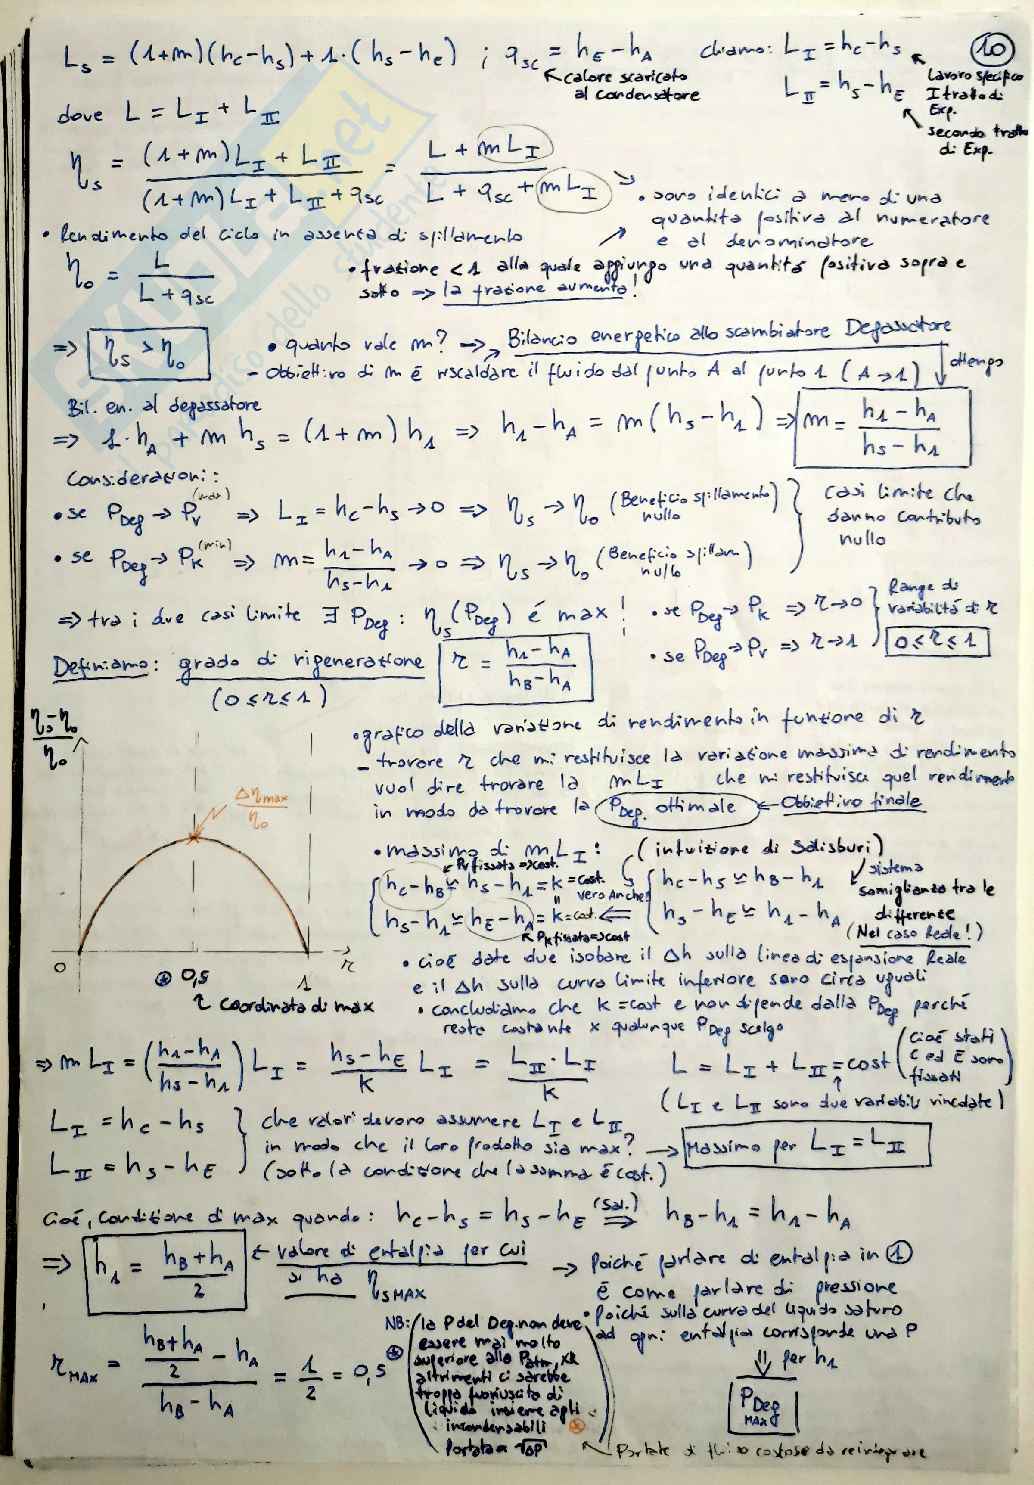 10
L_s = (1+m)(h_c-h_s)+1·(h_s-h_e) ; q_sc = h_E-h_A
calore scaricato al condensatore
chiamo: L_I = h_c-h_s
L_II = h_s-h_E
Lavoro specifico
I tratto di
Exp.
secondo tratto
di Exp.
dove L = L_I + L_II
η_s = ((1+m)L_I + L_II)/((1+m)L_I + L_II + q_sc) = (L + mL_I)/(L + q_sc + mL_I)
• sono identici a meno di una
quantità positiva al numeratore
e al denominatore
• Rendimento del ciclo in assenza di spillamento
η_0 = L/(L + q_sc)
• frazione <1 alla quale aggiungo una quantità positiva sopra e
sotto => la frazione aumenta!
=> η_s > η_0
• quanto vale m? -> Bilancio energetico allo scambiatore Degassatore
- Obbiettivo di m è riscaldare il fluido dal punto A al punto 1 (A→1)
ottengo
Bil. en. al degassatore
=> 1·h_A + m h_s = (1+m) h_1 => h_1-h_A = m(h_s-h_1) => m = (h_1-h_A)/(h_s-h_1)
Considerazioni:
• se P_Deg → P_V (max) => L_I = h_c-h_s → 0 => η_s → η_0 (Beneficio spillamento nullo)
• se P_Deg → P_K (min) => m = (h_1-h_A)/(h_s-h_1) → 0 => η_s → η_0 (Beneficio spillam nullo)
casi limite che
danno contributo
nullo
=> tra i due casi limite ∃ P_Deg : η_s (P_Deg) é max!
• se P_Deg → P_K => r→0
• se P_Deg → P_V => r→1
Range di
variabilità di r
0≤r≤1
Definiamo: grado di rigenerazione r = (h_1-h_A)/(h_B-h_A)
(0≤r≤1)
(η_s-η_0)/η_0
Δη_max/η_0
0
⊛ 0,5
1
r
r coordinata di max
• grafico della variazione di rendimento in funzione di r
- trovare r che mi restituisce la variazione massima di rendimento
vuol dire trovare la mL_I che mi restituisce quel rendimento
in modo da trovare la P_Deg. ottimale ← Obbiettivo finale
• massimo di mL_I: (intuizione di Salisburi)
P_V fissata => cost.
h_c-h_B ≃ h_s-h_1 = k = cost.
vero Anche
h_s-h_1 ≃ h_E-h_A = k = cost.
P_K fissata => cost
h_c-h_s ≃ h_B-h_1
h_s-h_E ≃ h_1-h_A
sistema
somiglianza tra le
differenze
(Nel caso Reale!)
• cioé date due isobare il Δh sulla linea di espansione Reale
e il Δh sulla curva limite inferiore sono circa uguali
• concludiamo che k = cost e non dipende dalla P_Deg perché
resta costante x qualunque P_Deg scelgo
=> mL_I = ((h_1-h_A)/(h_s-h_1)) L_I = (h_s-h_E)/K L_I = (L_II·L_I)/K
L = L_I + L_II = cost (cioé stati C ed E sono fissati)
(L_I e L_II sono due variabili vincolate)
L_I = h_c-h_s
L_II = h_s-h_E
che valori devono assumere L_I e L_II
in modo che il loro prodotto sia max? → Massimo per L_I = L_II
(sotto la condizione che la somma é cost.)
Cioé, condizione di max quando: h_c-h_s = h_s-h_E (Sal.) => h_B-h_1 = h_1-h_A
=> h_1 = (h_B+h_A)/2 ← valore di entalpia per cui
si ha η_sMAX
→ Poiché parlare di entalpia in ①
é come parlare di pressione
• Poiché sulla curva del liquido saturo
ad ogni entalpia corrisponde una P
per h_1
P_Deg MAX
r_MAX = ((h_B+h_A)/2 - h_A)/(h_B-h_A) = 1/2 = 0,5 ⊛
NB: la P del Deg. non deve
essere mai molto
superiore alla Patm, xk
altrimenti ci sarebbe
troppa fuoriuscita di
liquido insieme agli
incondensabili
Portata α √ΔP
Portate di costose da reintegrare